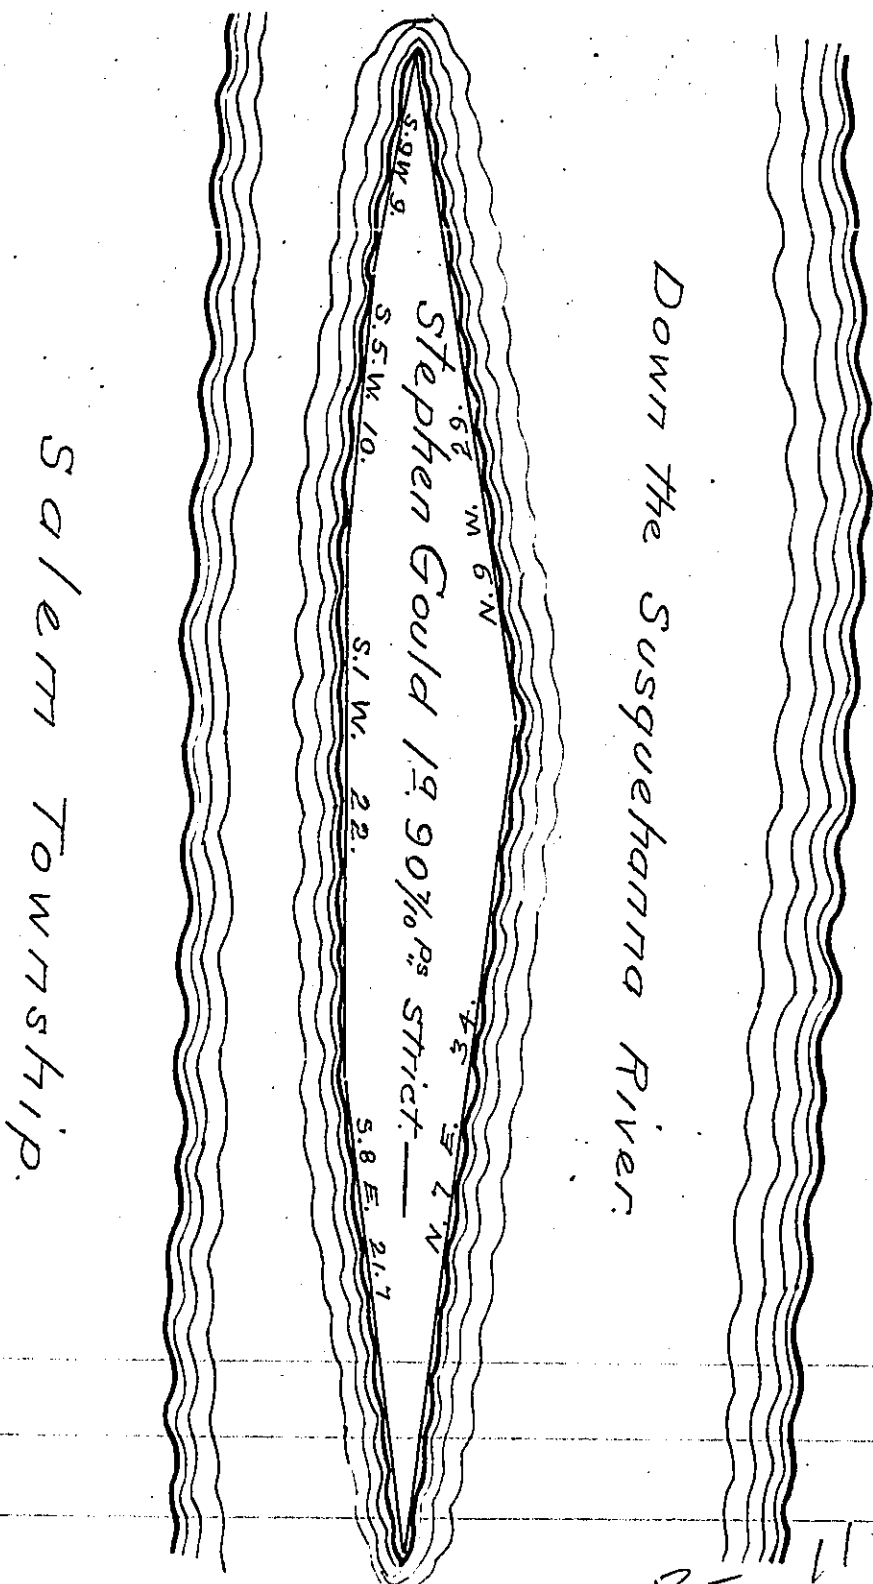 Down the Susquehanna River.
N. 6 W. 29.
N. 7 E. 34.
Stephen Gould 1a. 90 7/10 Ps. strict.—
S. 9 W 9.
S. 5. W. 10.
S. 1 W. 22.
S. 8 E. 21.7
Salem Township.